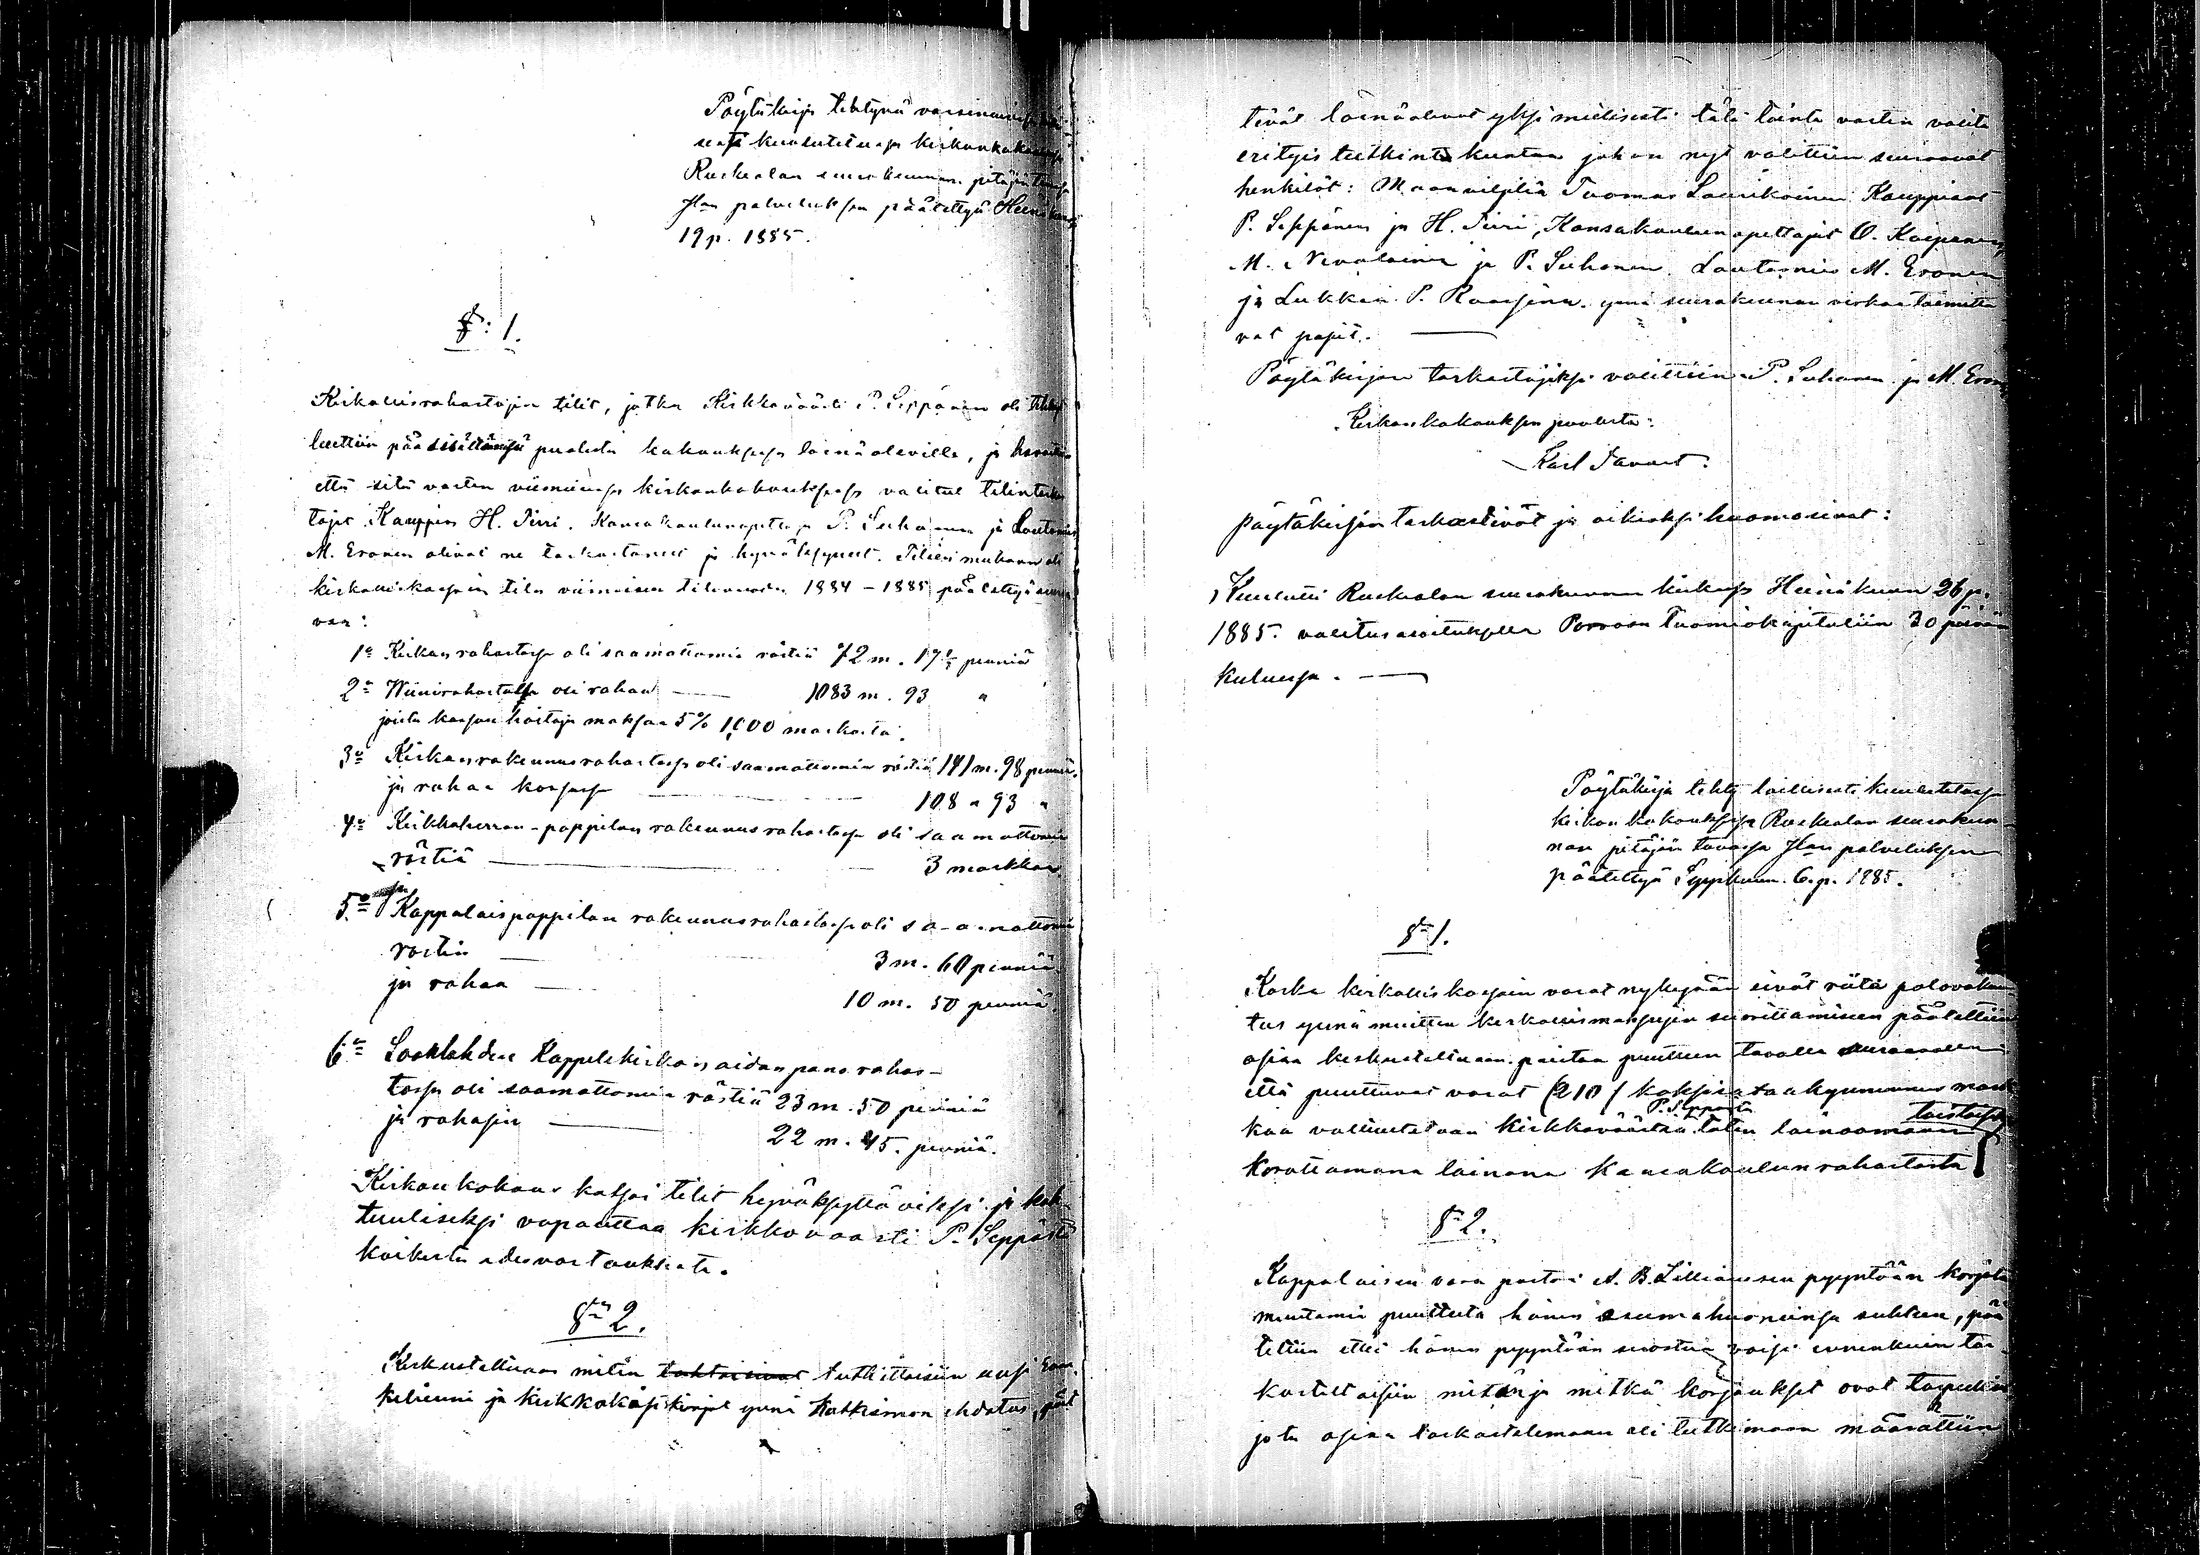 Pöytäkirja tehtynä varsinaisessa
kuulutetussa kirkonkokouksessa
Ruskealan seurakunnan pitäjäntuvassa
Jlan palveluksen päätettyä Heinäkuun
19 p. 1885.
§: 1.
Kirkollisrahastojen tilit, jotka Kirkkoväärti P. Seppänen oli tehnyt
luettiin pää sisältönsä puolesta kokouksessa läsnä oleville, ja havaittiin
että sitä varten viimeisessä kirkonkokouksessa valitut tilintarkas
tajat Kauppias H. Piiri, Kansakoulunopettaja P. Suhonen ja Lautamies
M. Eronen olivat ne tarkastaneet ja hyväksyneet. Tilien mukaan oli
kirkolliskassain tila viimeisen tilivuoden 1884 - 1885 päätettyä seuraa
van:
1o Kirkon rahastossa oli saamattomia rästiä 72 m. 17½ penniä
2o Wiinirahastossa oli rahaa — 1083 m. 93 "
joista kassan hoitaja maksaa 5% 1,000 markasta.
3o Kirkonrakennusrahastossa oli saamattomia rästiä 141 m. 98 penniä.
ja rahaa kassassa — 108 " 93 "
4o Kirkkoherran-pappilan rakennusrahastossa oli saamattomia
rästiä — 3 markkaa
5o Kappalaispappilan rakennusrahastossa oli saamattomia
rästiä — 3 m. 60 penniä
ja rahaa — 10 m. 50 penniä.
6o Soanlahden Kappelikirkon aidan pano rahas-
tossa oli saamattomia rästiä 23 m. 50 penniä
ja rahassa — 22 m. 45. penniä.
Kirkonkokous katsoi tilit hyväksyttäviksi ja koh
tuulliseksi vapauttaa kirkkovaarti P. Seppästä
kaikesta edesvastauksesta.
§o 2.
Keskusteltuaan miten tahtoisivat tutkittaisiin uusi Evan
keliumi ja kirkkokäsikirjat ynnä katkismon ehdotus, päät
tivät läsnäolevat yksimielisesti tätä tointa varten valita
erityis tutkintokuntaa johon nyt valittiin seuraavat
henkilöt: Maanviljeliä Tuomas Laurikainen Kauppiaat
P. Seppänen ja H. Piiri, Kansakoulunopettajat O. Karppanen,
M. Nevalainen ja P. Suhonen. Lautamies M. Eronen
ja Lukkari P. ynnä seurakunnan virkaa toimitta
vat papit. —
Pöytäkirjan tarkastajiksi valittiin P. Suhonen ja M. Eronen
Kirkonkokouksen puolesta:
Karl
Pöytäkirjan tarkastivat ja oikeaksi huomasivat:
Kuulutti Ruskealan seurakunnan kirkossa Heinäkuun 26 p.
1885. valitusosoituksella Porvoon Tuomiokapituliin 30 päivän
kuluessa. —
Pöytäkirja tehty laillisesti kuulutetussa
kirkonkokouksessa Ruskealan seurakun
nan pitäjän tuvassa Jlan palveluksen
päätettyä Syyskuun 6. p. 1885.
§o 1.
Koska kirkolliskassain varat nykyjään eivät riitä palovakuu
tus ynnä muitten kirkollismaksujen suorittamiseen päätettiin
asiaa keskusteltuaan poistaa puutteen tavalla seuraavalla
että puuttuvat varat (210) kaksisataakymmenen mark
kaa valtuutetaan kirkkoväärtiä P. Seppästä täten lainaamaan toistaiseksi
korottomana lainana kansakoulunrahastosta
§o 2.
Kappalaisen vara pastori A. B. Lilliuksen pyyntöön korjata
muutamia puutteita hänen asumahuoneinsa suhteen, pää
tettiin ettei hänen pyyntöön suostua voisi ennenkuin tar
kastettaisiin mitä ja mitkä korjaukset ovat tarpeelliset
jota asiaa tarkastelemaan eli tutkimaan määrättiin